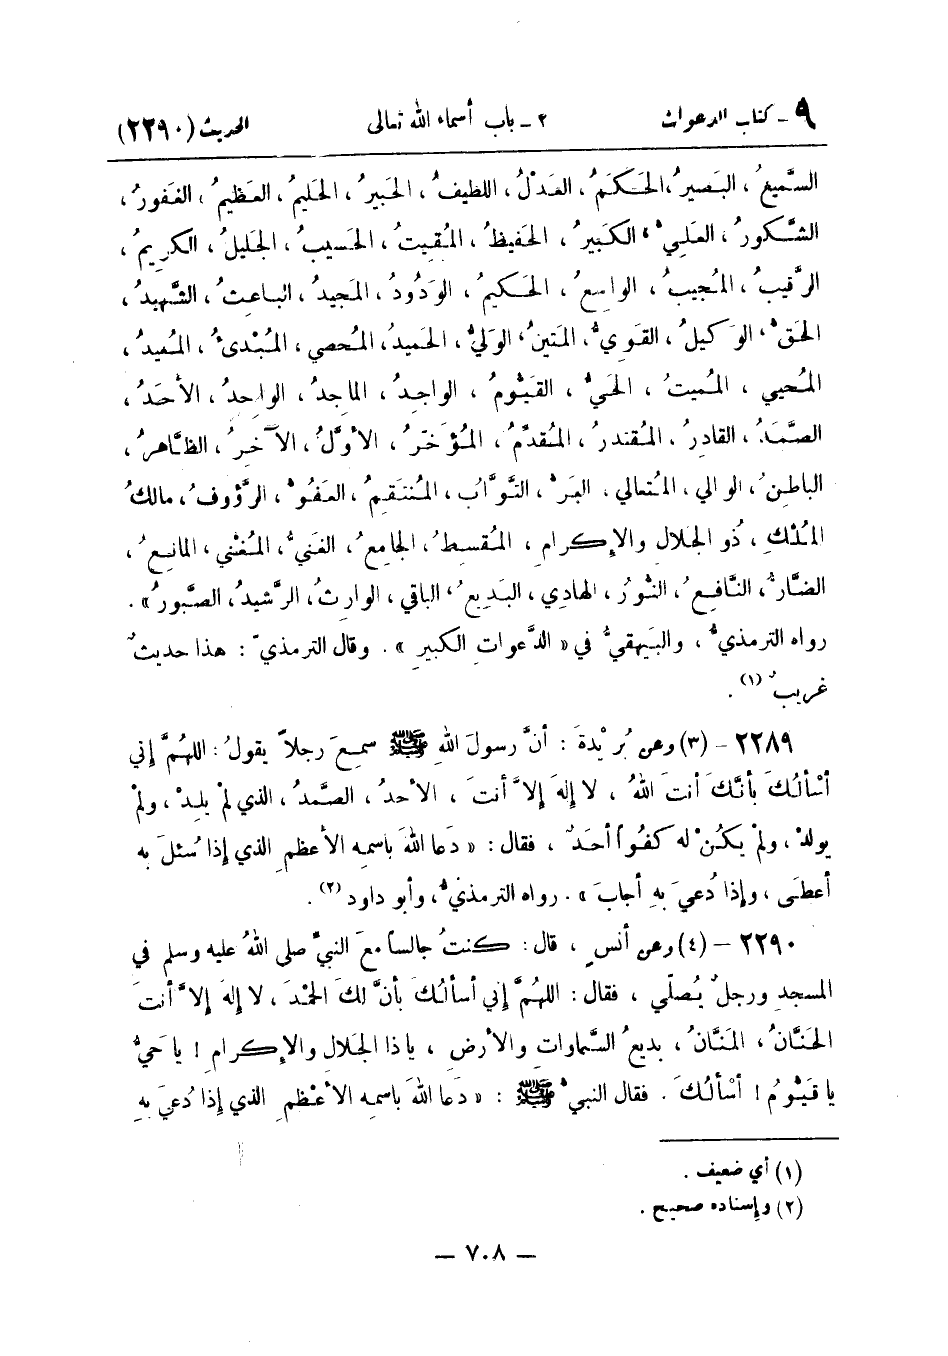 ٩ - كتاب الدعوات ٢ - باب أسماء الله تعالى الحديث (٢٢٩٠)
السَّميعُ ، البَصيرُ ، الحَكَمُ ، العَدْلُ ، اللطيفُ ، الخَبيرُ ، الحَليمُ ، العَظيمُ ، الغَفورُ ،
الشَّكورُ ، العَليُّ ، الكَبيرُ ، الحَفيظُ ، المُقيتُ ، الحَسيبُ ، الجَليلُ ، الكريمُ ،
الرَّقيبُ ، المُجيبُ ، الواسِعُ ، الحَكيمُ ، الوَدُودُ ، المَجيدُ ، الباعثُ ، الشَّهيدُ ،
الحَقُّ ، الوَكيلُ ، القَوِيُّ ، المَتينُ ، الوَليُّ ، الحَميدُ ، المُحصي ، المُبْدىءُ ، المُعيدُ ،
المُحيي ، المُميتُ ، الحَيُّ ، القَيُّومُ ، الواجِدُ ، الماجِدُ ، الواحِدُ ، الأحَدُ ،
الصَّمَدُ ، القادِرُ ، المُقتدرُ ، المُقدِّمُ ، المُؤَخِّرُ ، الأوَّلُ ، الآخِرُ ، الظَّاهرُ ،
الباطِنُ ، الوالي ، المُتعالي ، البَرُّ ، التَّوَّابُ ، المُنتَقِمُ ، العَفُوُّ ، الرَّؤوفُ ، مالكُ
المُلْكِ ، ذُو الجَلالِ والإِكرامِ ، المُقسِطُ ، الجامِعُ ، الغَنيُّ ، المُغْني ، المانِعُ ،
الضَّارُّ ، النَّافِعُ ، النُّورُ ، الهادِي ، البَدِيعُ ، الباقي ، الوارِثُ ، الرَّشيدُ ، الصَّبورُ » .
رواه الترمذيُّ ، والبَيهقيُّ في « الدَّعواتِ الكبيرِ » . وقال الترمذيّ : هذا حديثٌ
غريبٌ (١) .
٢٢٨٩ - (٣) وعن بُرَيْدةَ : أنَّ رسولَ اللهِ ﷺ سمِعَ رجلاً يقولُ : اللهُمَّ إني
أسْألُكَ بأنَّكَ أنتَ اللهُ ، لا إلهَ إلاَّ أنتَ ، الأحدُ ، الصَّمدُ ، الذي لمْ يلِدْ ، ولمْ
يولَدْ ، ولمْ يكُنْ له كفُواً أحَدٌ ، فقال : « دَعا اللهَ باسمِه الأعظمِ الذي إذا سُئلَ به
أعطَى ، وإذا دُعيَ بهِ أجابَ » . رواه الترمذيُّ ، وأبو داود (٢) .
٢٢٩٠ - (٤) وعن أنسٍ ، قال : كنتُ جالساً معَ النبيِّ صلى اللهُ عليه وسلم في
المسجدِ ورجلٌ يُصلّي ، فقال : اللهُمَّ إني أسألُكَ بأنَّ لكَ الحَمْدَ ، لا إلهَ إلاَّ أنتَ
الحَنَّانُ ، المَنَّانُ ، بديعُ السَّماواتِ والأرضِ ، ياذا الجَلالِ والإِكرامِ ! يا حَيُّ
يا قَيُّومُ ! أسْألُكَ . فقال النبيُّ ﷺ : « دَعا اللهَ باسمِه الأعْظمِ الذي إذا دُعيَ بهِ
(١) أي ضعيف .
(٢) وإسناده صحيح .
— ٧٠٨ —